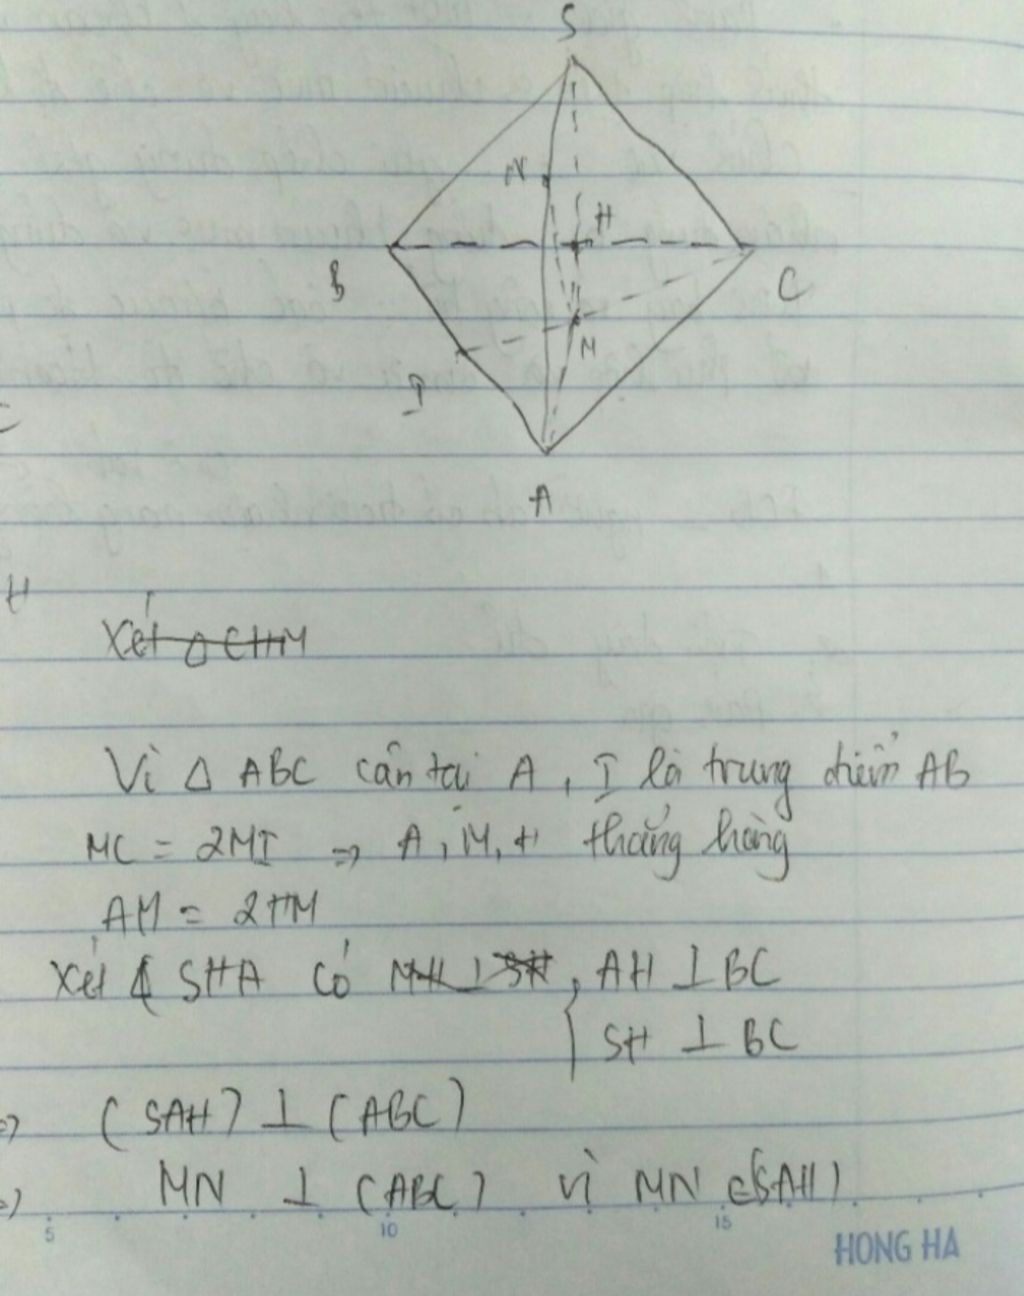 S
N
H
B
C
M
I
A
H
Xét △ CHM
Vì △ ABC cân tại A, I là trung điểm AB
MC = 2MI => A, M, H thẳng hàng
AM = 2HM
Xét SHA có MH ⊥ SH, AH ⊥ BC
SH ⊥ BC
=> (SAH) ⊥ (ABC)
=> MN ⊥ (ABC) vì MN ∈ (SAH)
5 10 15
HONG HA